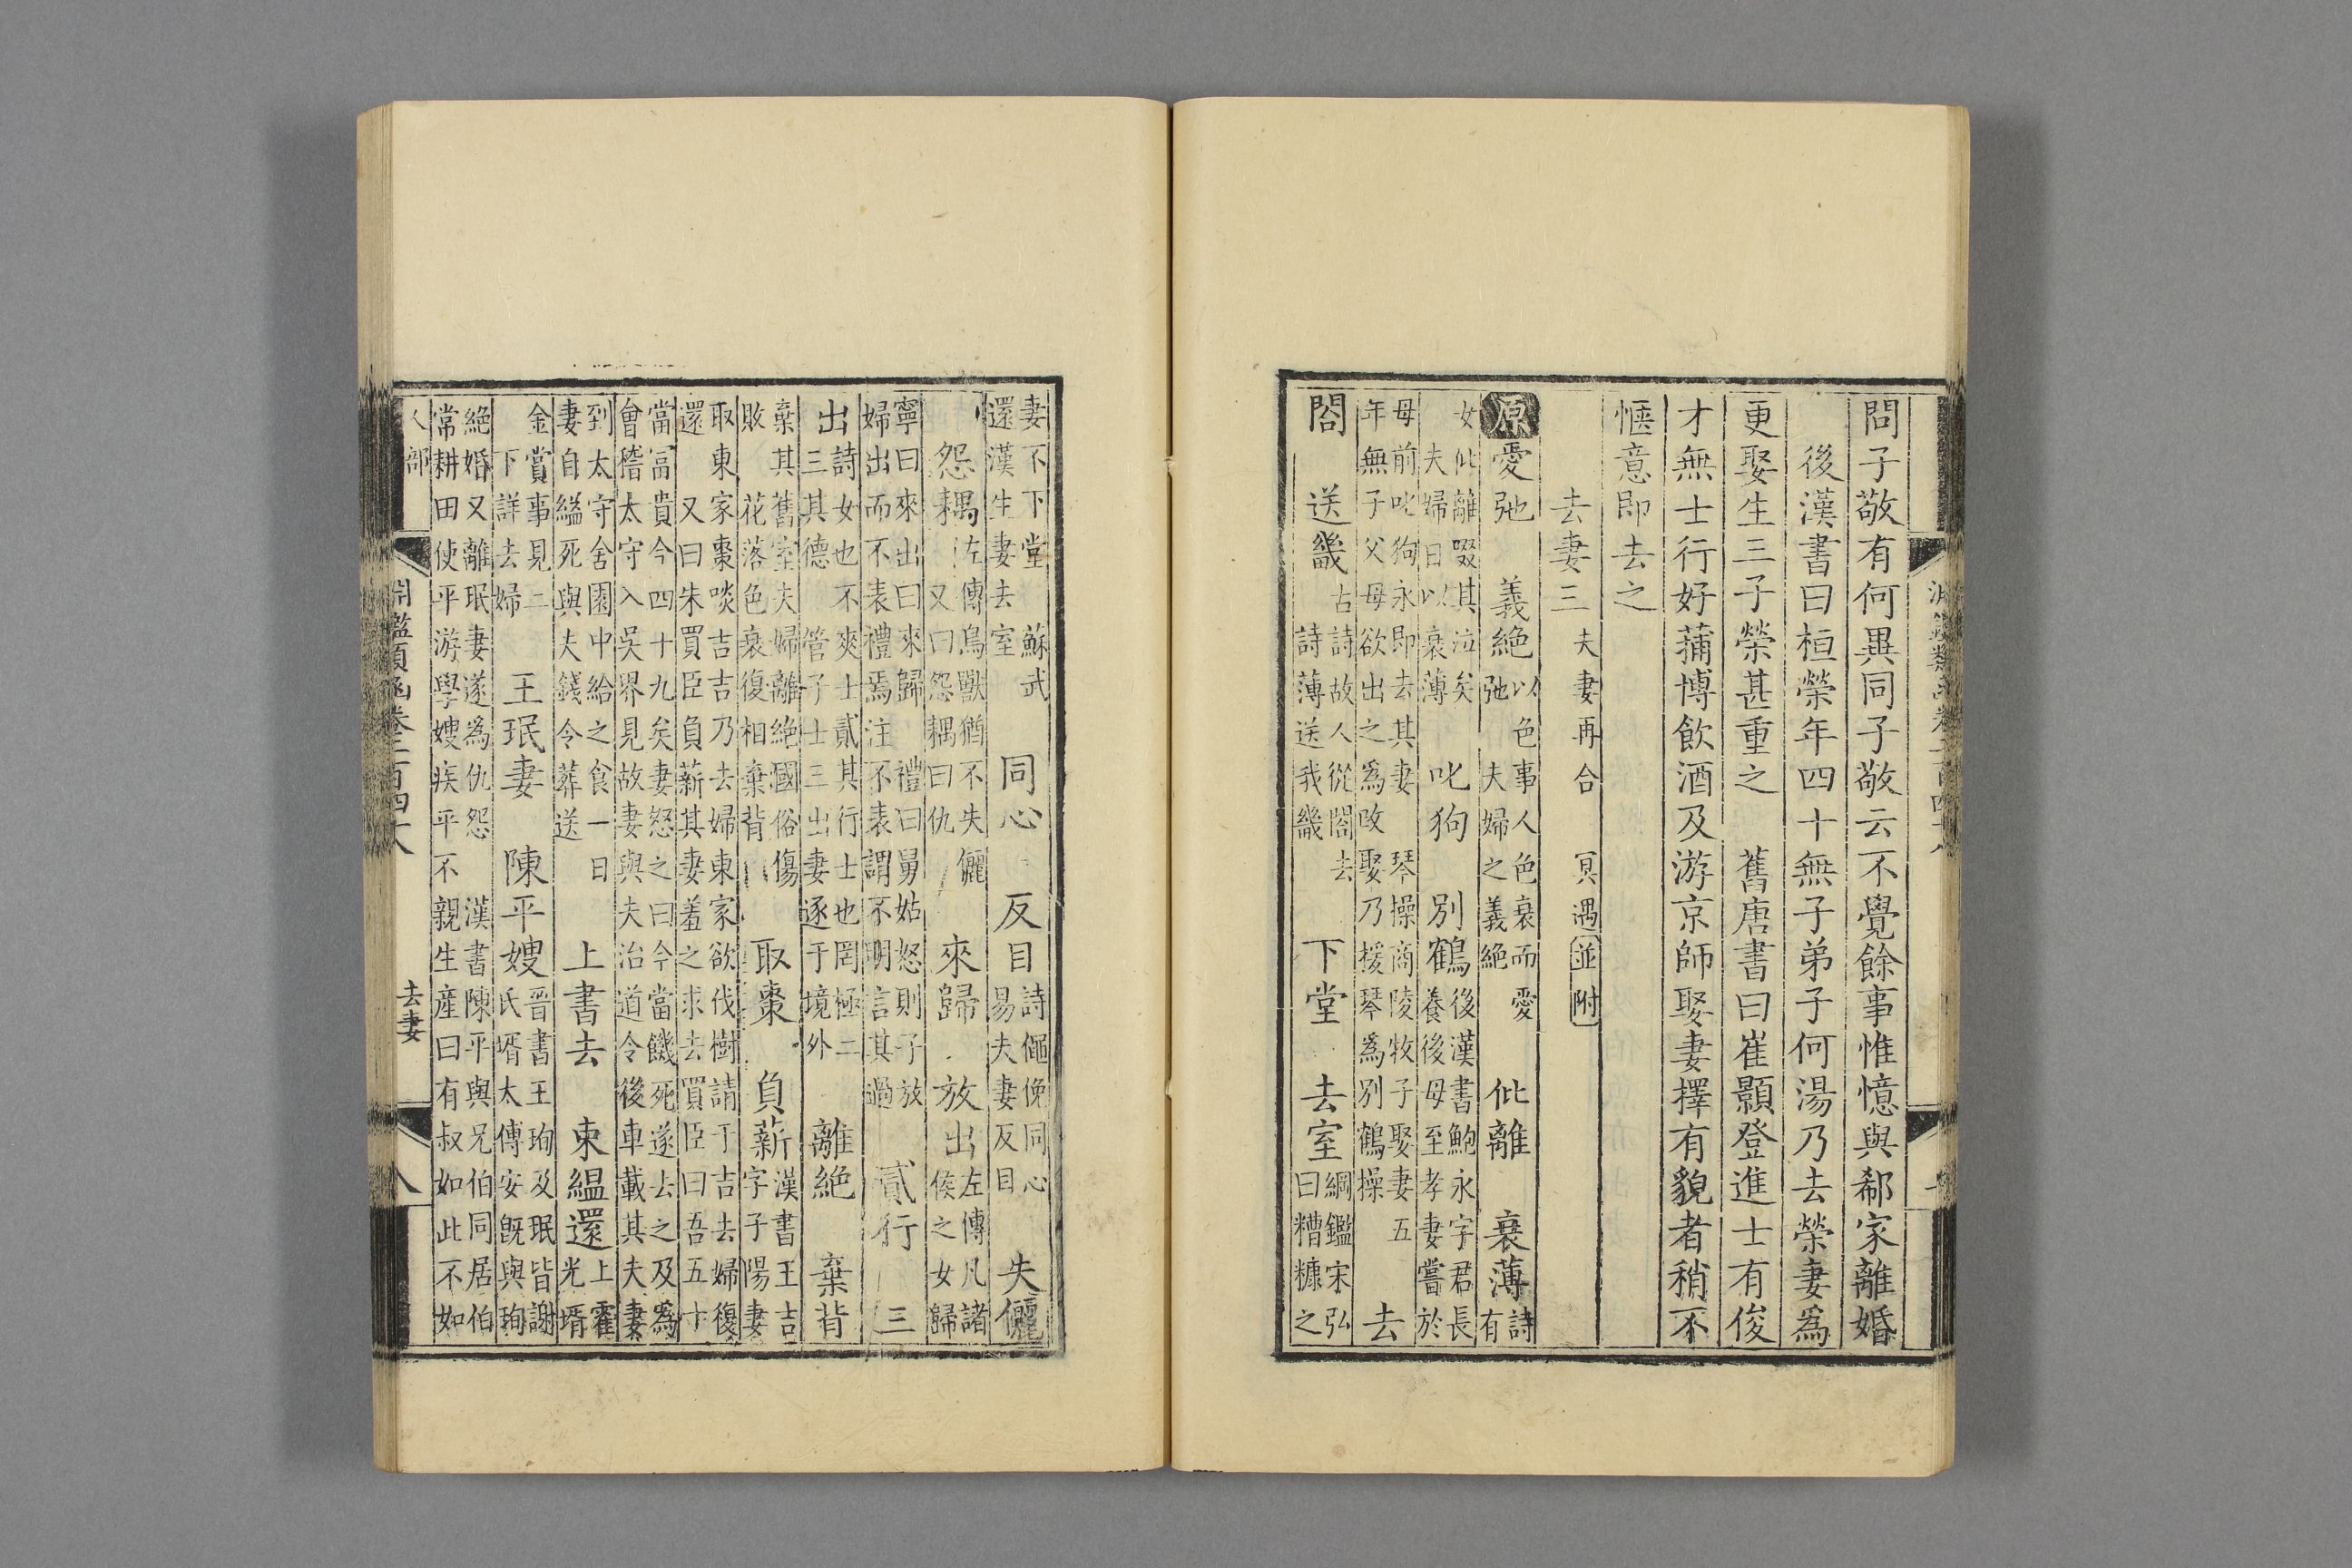 問子敬有何異同子敬云不覺餘事惟憶與郗家離婚
後漢書曰桓榮年四十無子弟子何湯乃去榮妻爲
更娶生三子榮甚重之 舊唐書曰崔顥登進士有俊
才無士行好蒱博飲酒及游京師娶妻擇有貌者稍不
愜意即去之
去妻三 夫妻再合 冥遇 並附
原 愛弛 義絕 以色事人人色衰而愛弛 夫婦之義絕 仳離 衰薄 詩有
女仳離啜其泣矣 夫婦日以衰薄 叱狗 別鶴 後漢書鮑永字君長養後母至孝妻嘗於
母前叱狗永即去其妻 琴操商陵牧子娶妻五年無子父母欲出之爲改娶乃援琴爲別鶴操 去
閤 送畿 古詩故人從閤去 詩薄送我畿 下堂 去室 綱鑑宋弘曰糟糠之
妻不下堂 蘇武還漢生妻去室 同心 反目 詩僶俛同心 易夫妻反目 失儷
怨耦 左傳鳥獸猶不失儷 又曰怨耦曰仇 來歸 放出 左傳凡諸侯之女歸
寧曰來出曰來歸 禮曰舅姑怒則子放婦出而不表禮焉注不表謂不明言其過 貳行 三
出 詩女也不爽士貳其行士也罔極二三其德 管子士三出妻逐于境外 離絕 棄背
棄其舊室夫婦離絕國俗傷敗 花落色衰復相棄背 取棗 負薪 漢書王吉字子陽妻
取東家棗啖吉吉乃去婦東家欲伐樹請于吉去婦復還 又曰朱買臣負薪其妻羞之求去買臣曰吾五十
當富貴今四十九矣妻怒之曰今當饑死遂去之及爲會稽太守入吳界見故妻與夫治道令後車載其夫妻
到太守舍園中給之食一日妻自縊死與夫錢令葬送 上書去 束縕還 上霍光壻
金賞事見二下詳去婦 王珉妻 陳平嫂 晉書王珣及珉皆謝氏壻太傅安既與珣
絕婚又離珉妻遂爲仇怨 漢書陳平與兄伯同居伯常耕田使平游學嫂疾平不親生產曰有叔如此不如
人部 淵鑑類函卷二百四十八 去妻 八